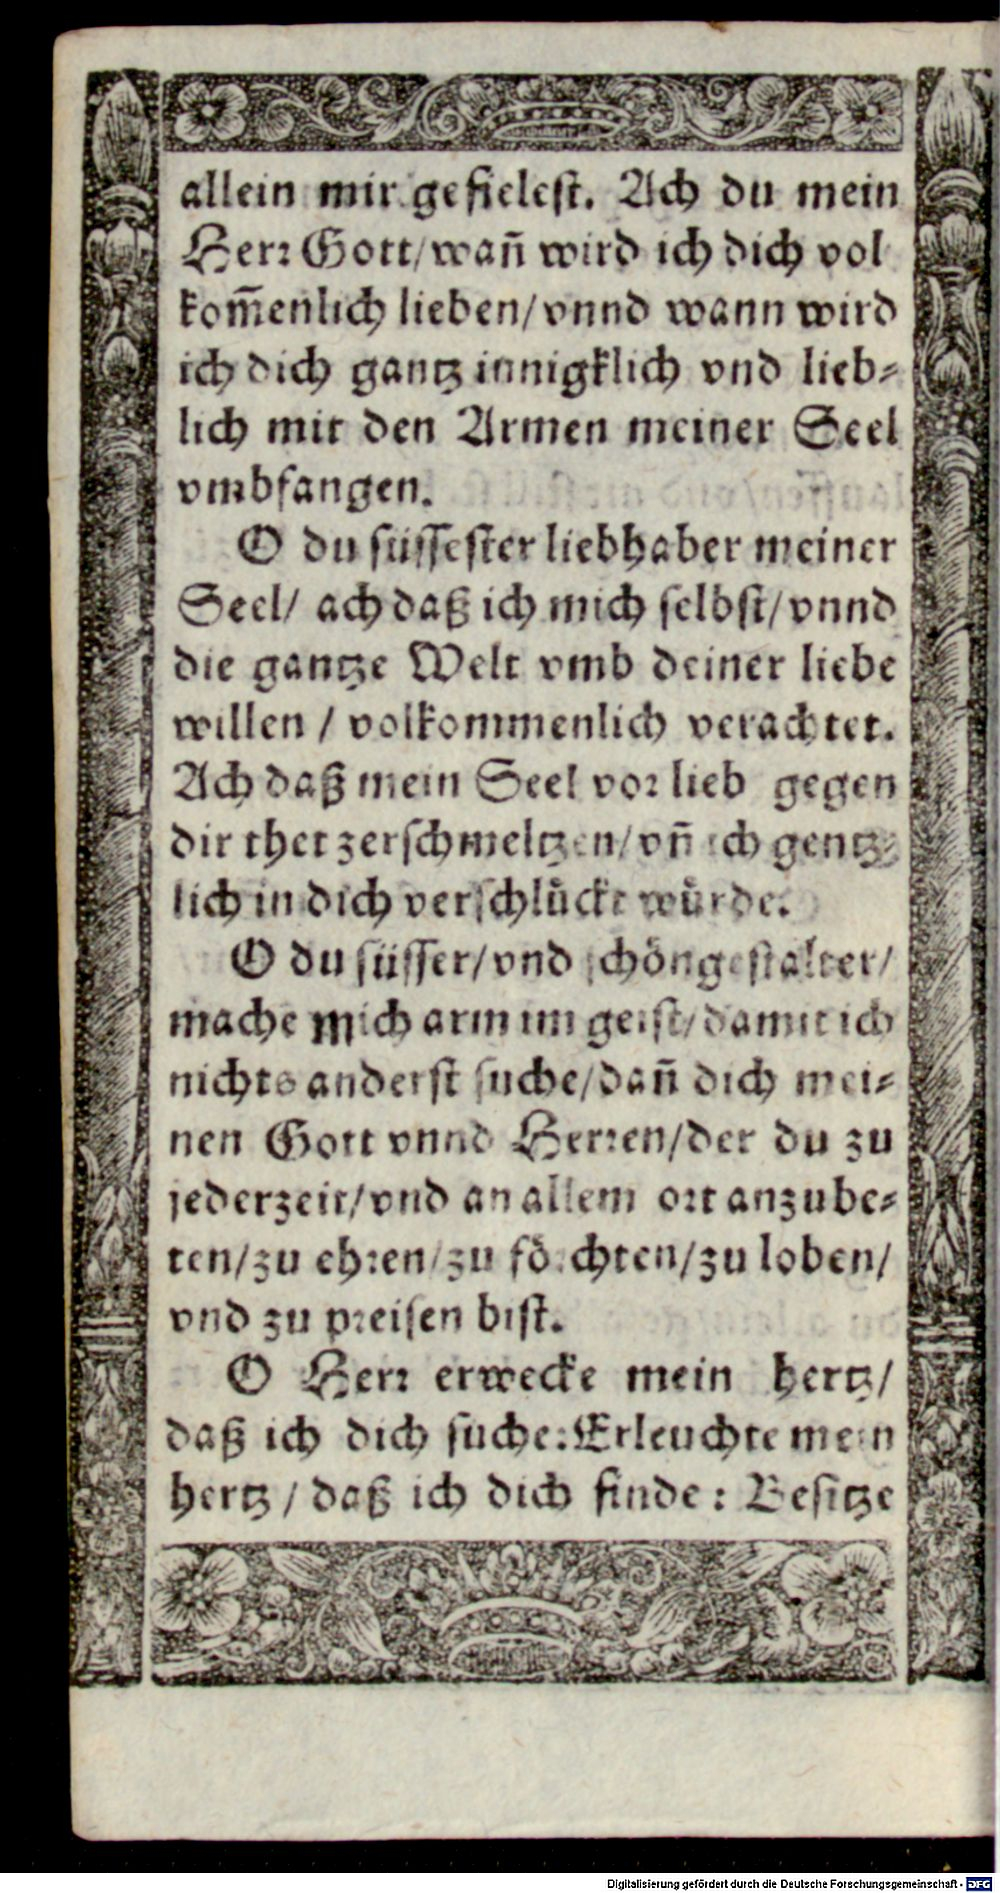 allein mir gefielest. Ach du mein
Herr Gott/wañ wird ich dich vol
kom̄enlich lieben/vnnd wann wird
ich dich gantz innigklich vnd lieb⸗
lich mit den Armen meiner Seel
vmbfangen.
O du süssester liebhaber meiner
Seel/ ach daß ich mich selbst/vnnd
die gantze Welt vmb deiner liebe
willen / volkommenlich verachtet.
Ach daß mein Seel vor lieb gegen
dir thet zerschmeltzen/vñ ich gentz⸗
lich in dich verschluͤckt wuͤrde.
O du süsser/vnd schoͤngestalter/
mache mich arm im geist/damit ich
nichts anderst suche/dañ dich mei⸗
nen Gott vnnd Herren/der du zu
jederzeit/vnd an allem ort anzube⸗
ten/zu ehren/zu foͤrchten/zu loben/
vnd zu preisen bist.
O Herr erwecke mein hertz/
daß ich dich suche:Erleuchte mein
hertz / daß ich dich finde: Besitze
Digitalisierung gefördert durch die Deutsche Forschungsgemeinschaft - DFG